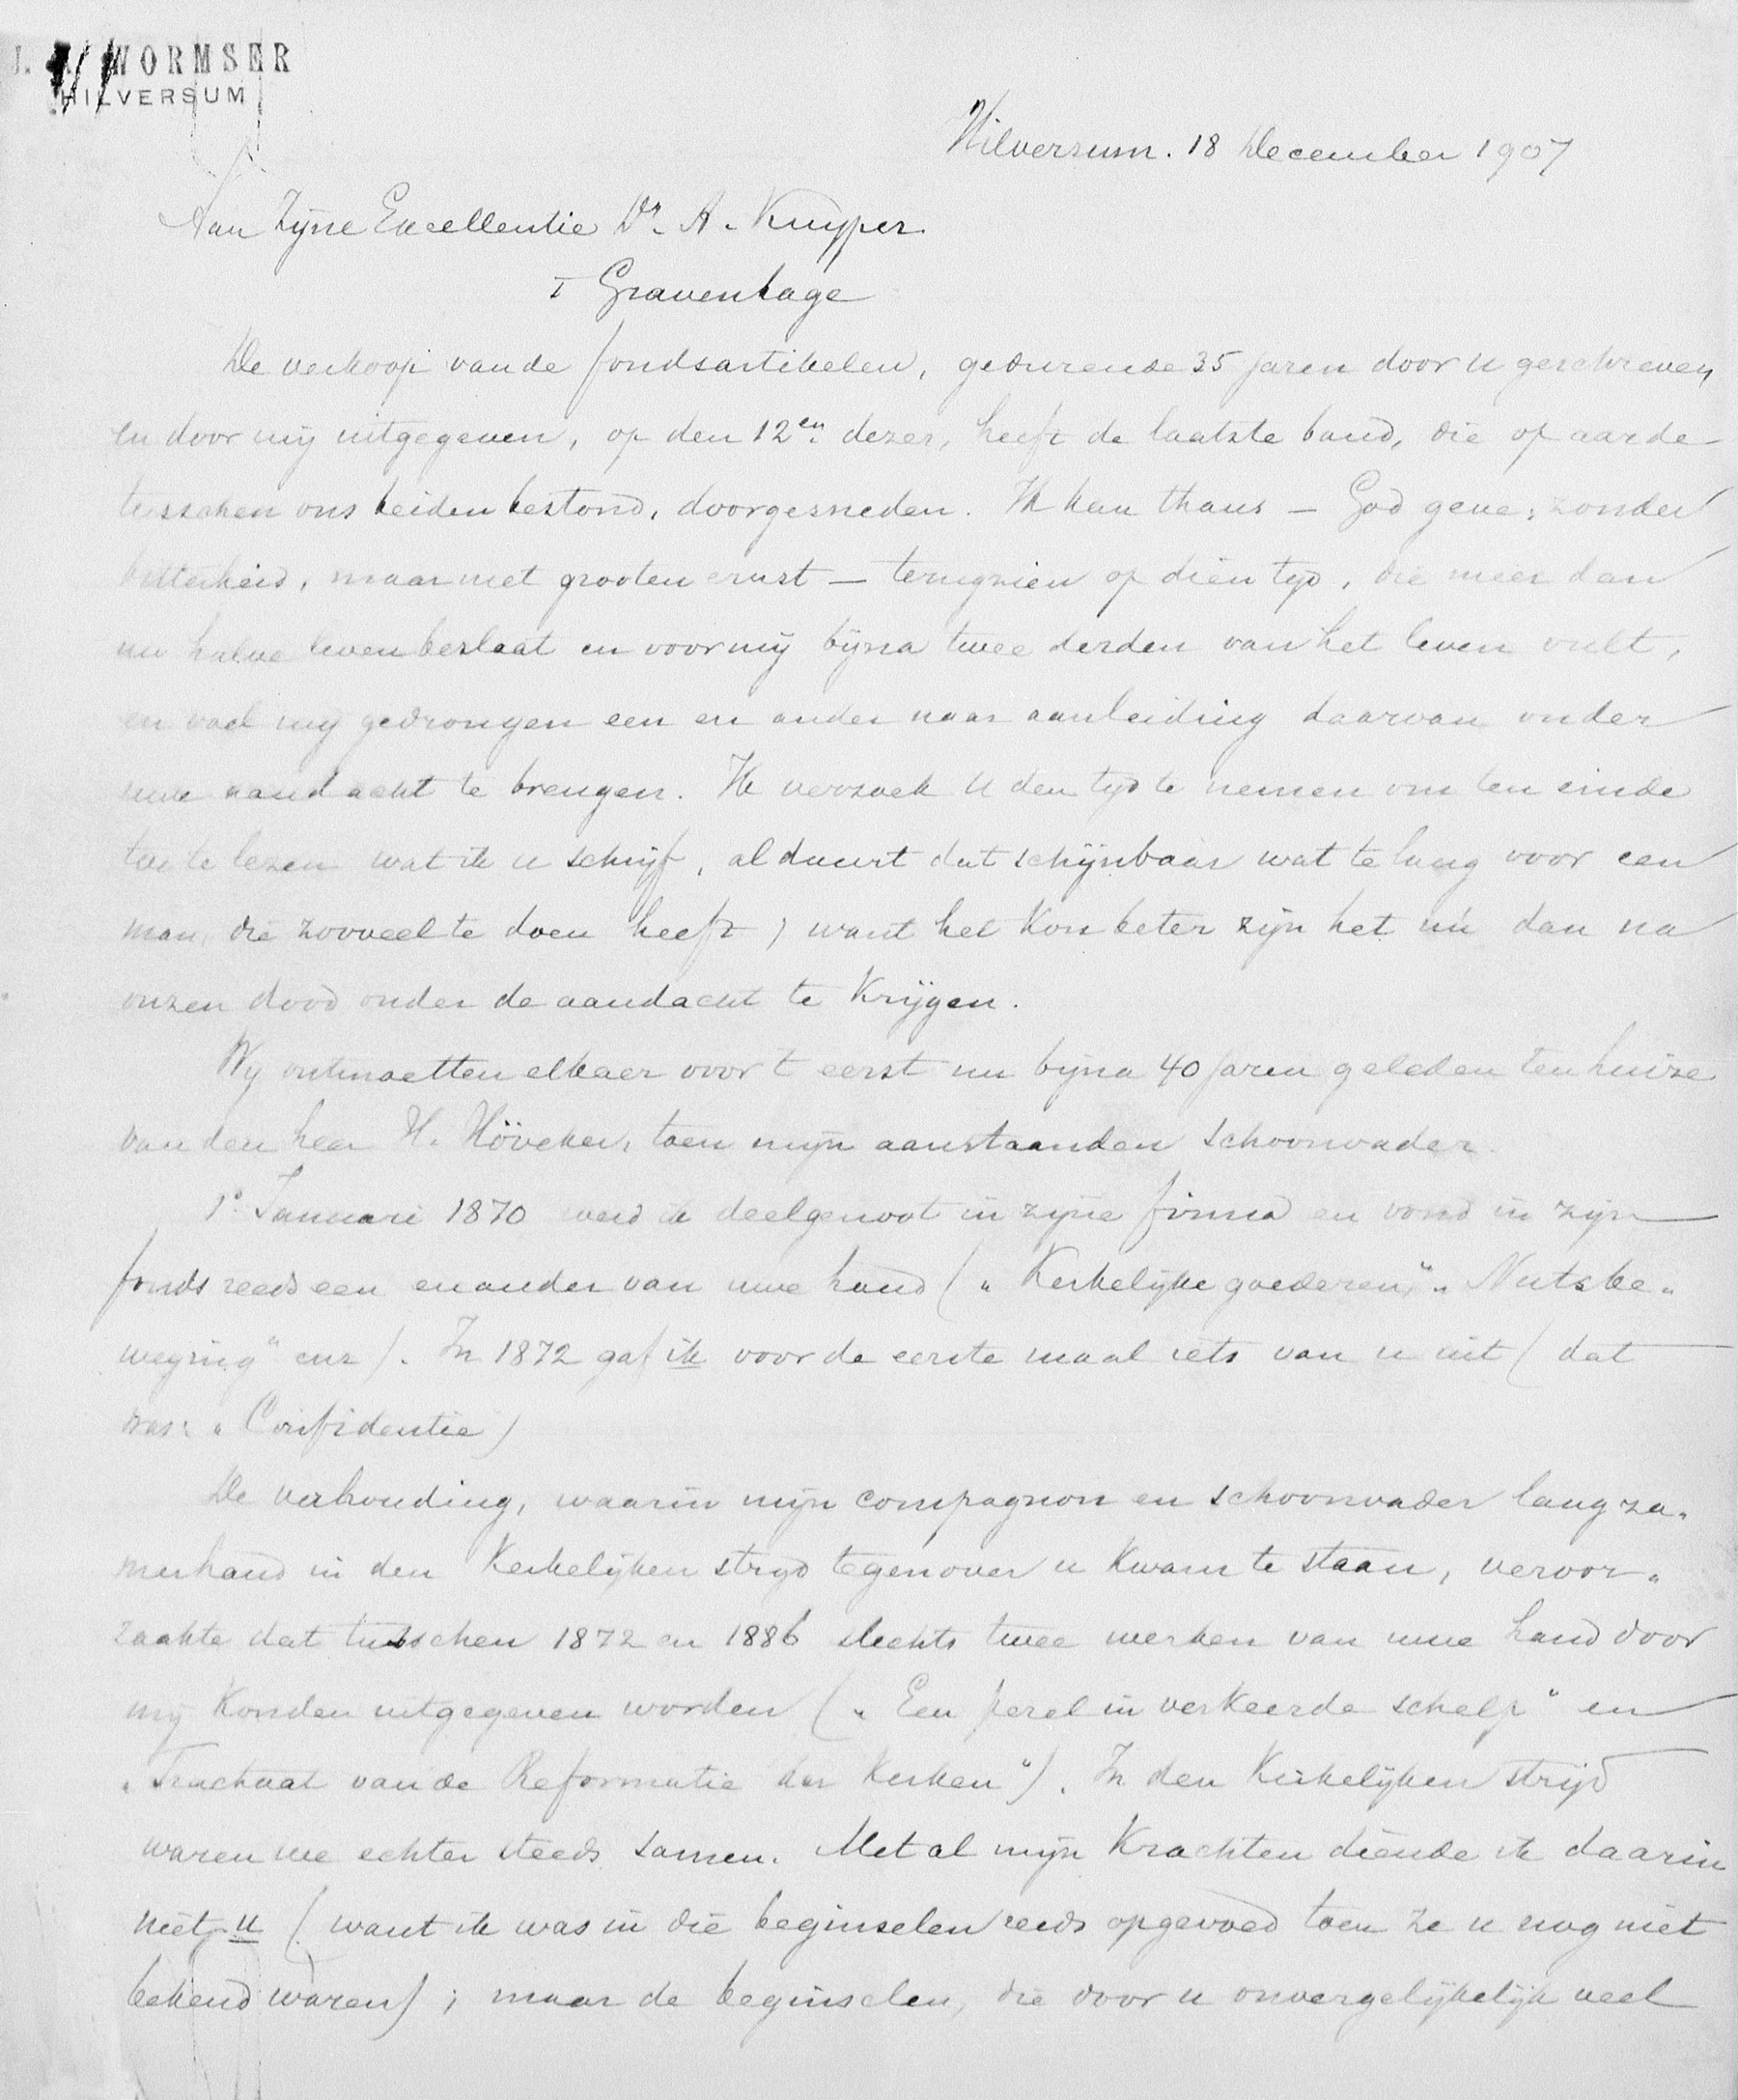 WORMSER
HILVERSUM
Hilversum. 18 December 1907
Aan Zijne Excellentie Dr. A. Kuyper.
's Gravenhage
De verkoop van de fondsartikelen, gedurende 35 jaren door u geschreven
en door mij uitgegeven, op den 12en dezer, heeft de laatste band, die op aarde
tusschen ons beiden bestond, doorgesneden. Ik kan thans — God geve: zonder
bitterheid, maar met grooten ernst — terugzien op dien tijd, die meer dan
uw halve leven beslaat en voor mij bijna twee derden van het leven vult,
en voel mij gedrongen een en ander naar aanleiding daarvan onder
uwe aandacht te brengen. Ik verzoek u den tijd te nemen om ten einde
toe te lezen wat ik u schrijf, al duurt dat schijnbaar wat te lang voor een
man, die zooveel te doen heeft; want het kon beter zijn het nú dan na
onzen dood onder de aandacht te krijgen.
Wij ontmoetten elkaer voor 't eerst nu bijna 40 jaren geleden ten huize
van den heer H. Höveker, toen mijn aanstaanden schoonvader.
1o Januari 1870 werd ik deelgenoot in zijne firma en vond in zijn
fonds reeds een en ander van uwe hand („Kerkelijke goederen", „Nutsbe„
weging" enz). In 1872 gaf ik voor de eerste maal iets van u uit (dat
was: „Confidentie)
De verhouding, waarin mijn compagnon en schoonvader langza„
merhand in den Kerkelijken strijd tegenover u kwam te staan, veroor„
zaakte dat tusschen 1872 en 1886 slechts twee werken van uwe hand door
mij konden uitgegeven worden („Een perel in verkeerde schelp" en
„Tractaat van de Reformatie der Kerken"). In den Kerkelijken strijd
waren we echter steeds samen. Met al mijn krachten diende ik daarin
niet u (want ik was in die beginselen reeds opgevoed toen ze u nog niet
bekend waren); maar de beginselen, die door u onvergelijkelijk veel